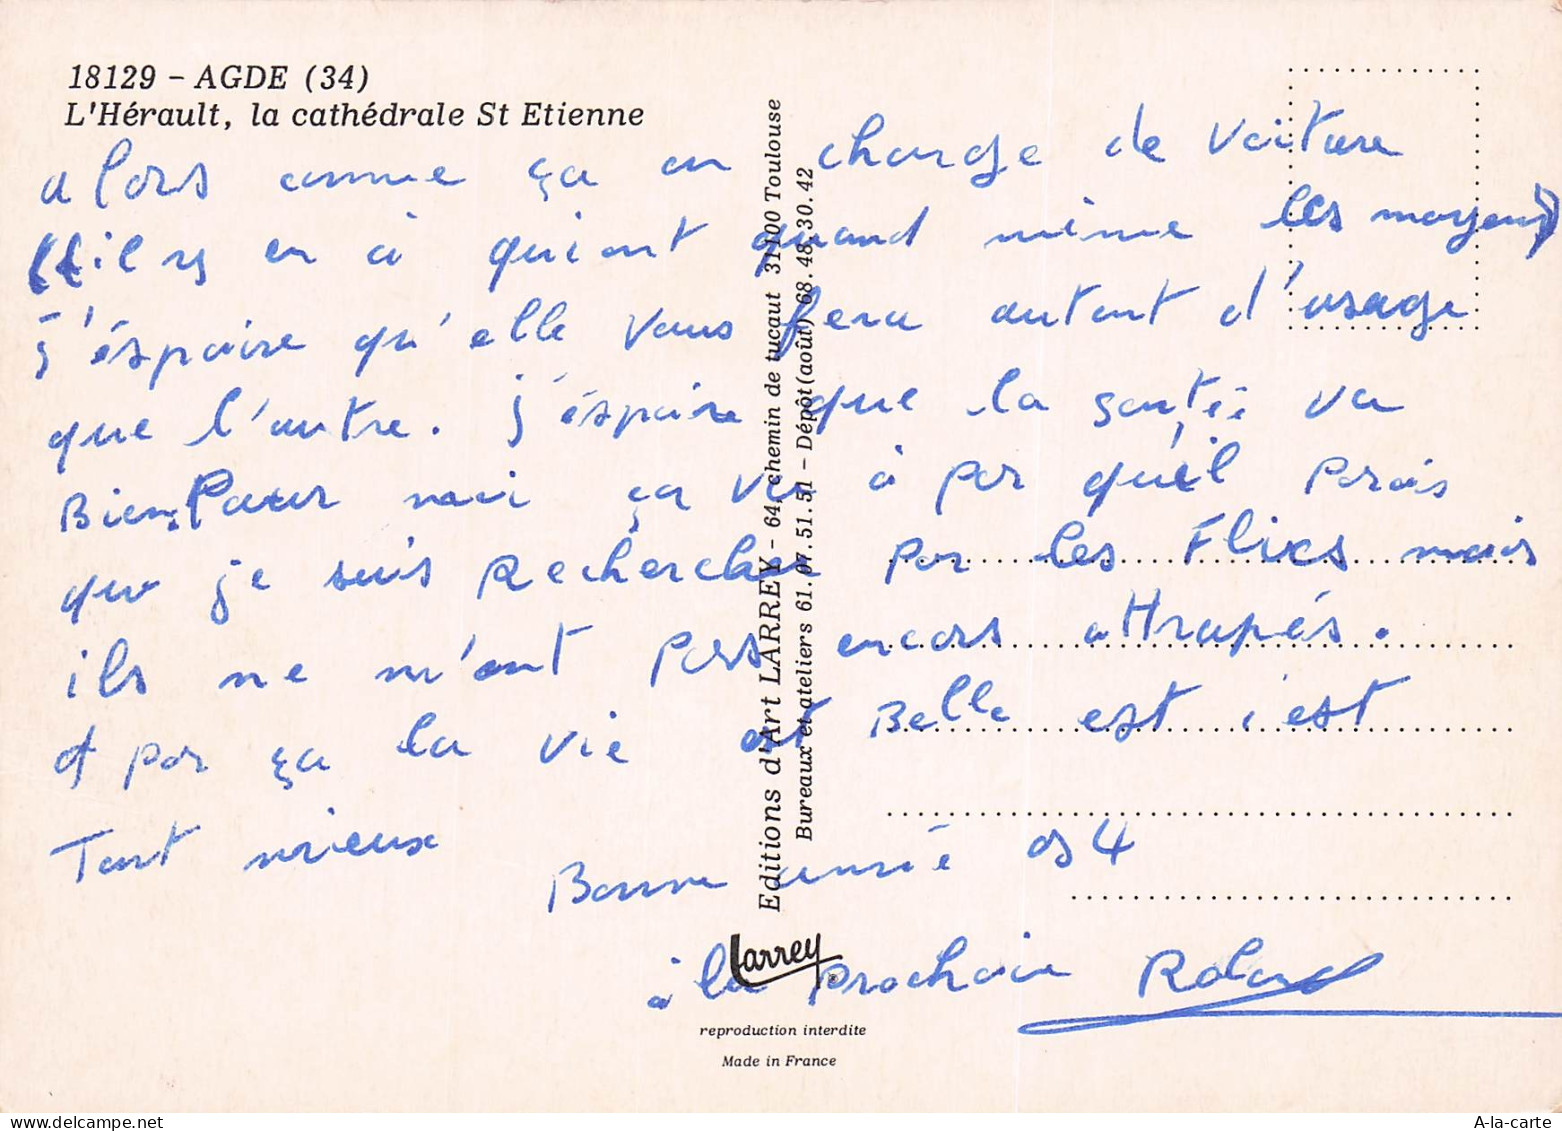 18129 - AGDE (34)
L'Hérault, la cathédrale St Etienne
alors comme ça on change de voiture
((il y en à qui ont quand mème les moyens))
j'éspaire qu'elle vous fera autant d'usage
que l'autre. j'éspaire que la santée va
Bien, Pour moi ça va à par qu'il parais
que je suis Rechercher par les Flics mais
ils ne m'ont pas encors attrapés.
à par ça la vie est Belle est s'est
Tant mieux
Bonne année os 4
à la prochaine Roland
Editions d'Art LARREY - 64, chemin de tucaut 31100 Toulouse
Bureaux et ateliers 61.07.51.51 - Dépôt (août) 68.48.30.42
Larrey
reproduction interdite
Made in France
A-la-carte